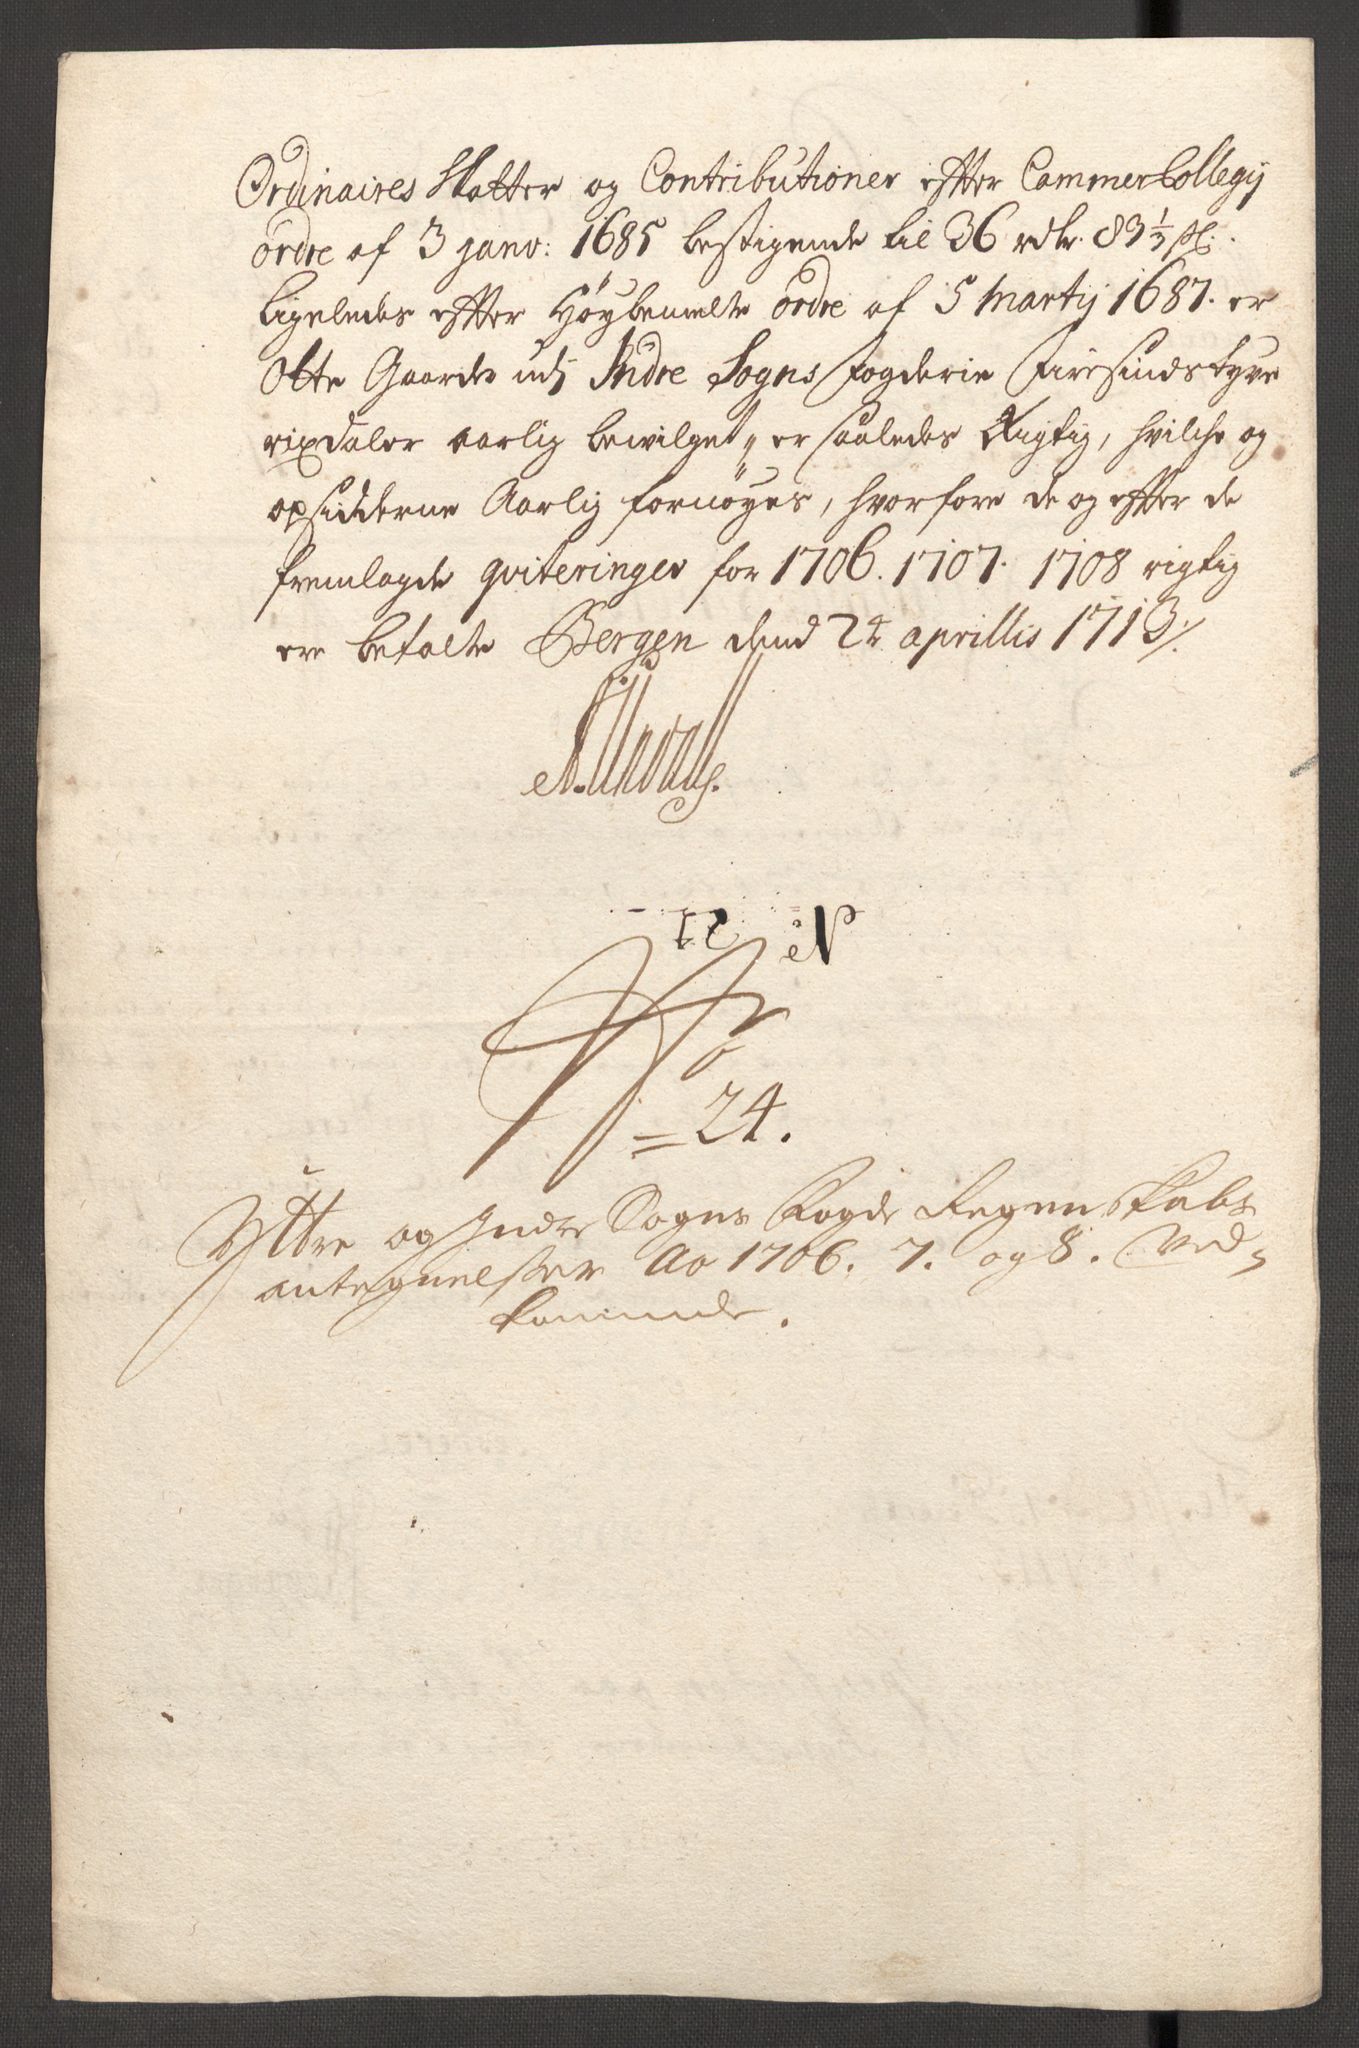 Ordinaires Skatter og Contributioner efter CammerCollegij
ordre af 3 janv: 1685 bestigende til 36 rdlr. 83 1/3 sk.
Ligeledes efter Høybemelte ordre af 5 Martij 1687. er
Otte Gaarde udj Indre Sogns fogderie Fiiresindstyve
rixdaler aarlig bewilget, er saaledes Rigtig, hvilche og
opsidderne Aarlig fornøyes, hvorfore de og efter de
fremlagde qviteringer for 1706. 1707. 1708 rigtig
ere betalte Bergen dend 24 aprillis 1713
N: 21
24.
Yttre og Indre Sogns Fogde Regenskabs
antegnelsser Ao 1706. 7. og 8. Ved-
kommende.